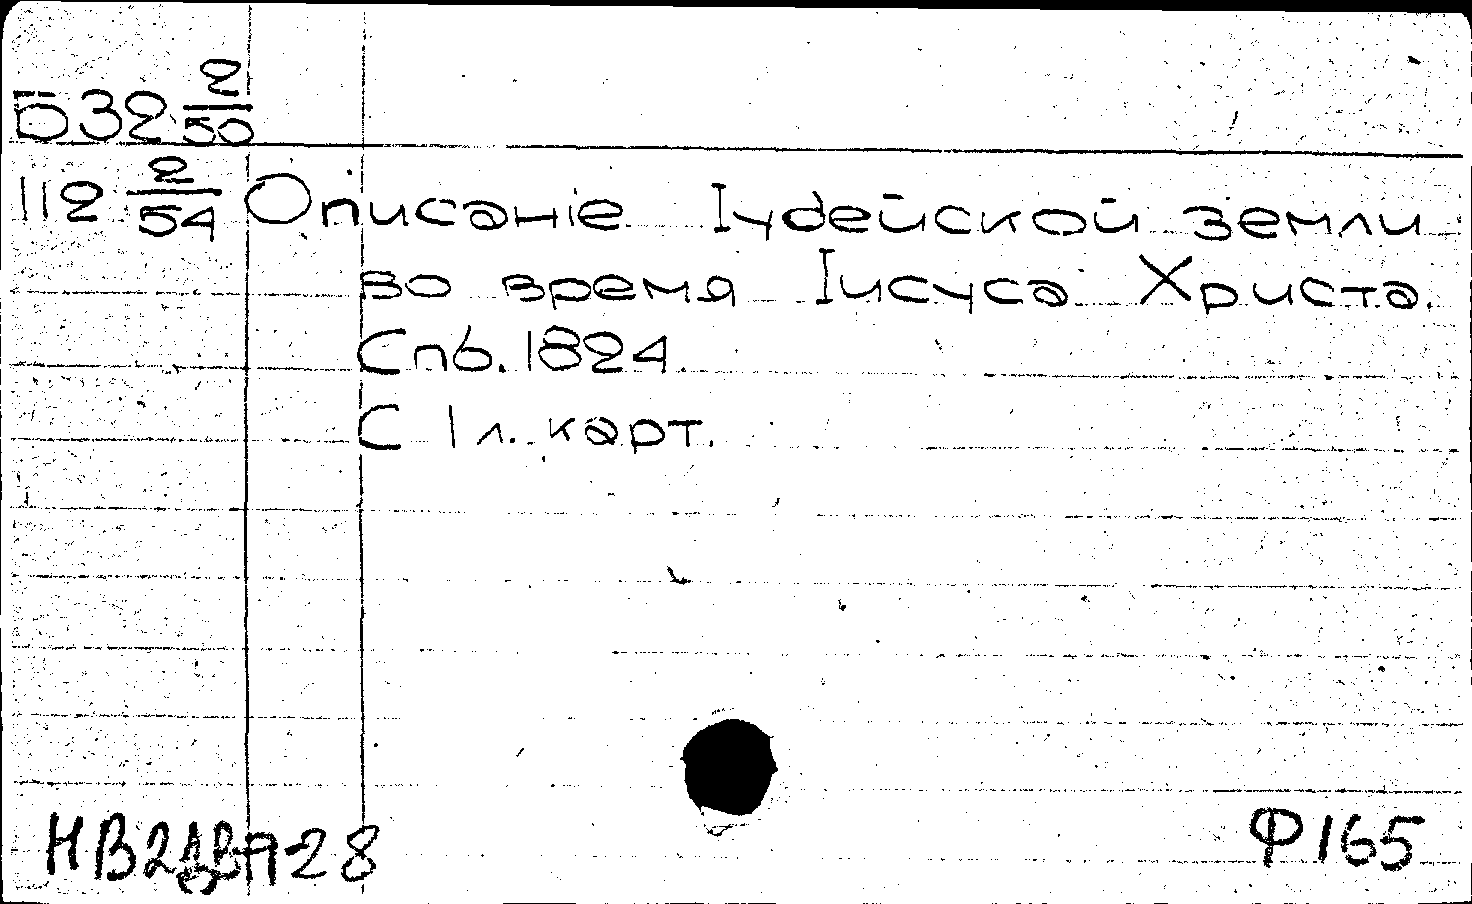 Б 32 2/50
112 2/54 Описаніе Іудейской земли
во время Іисуса Христа.
Спб. 1824.
С 1 л. карт.
Ф 165